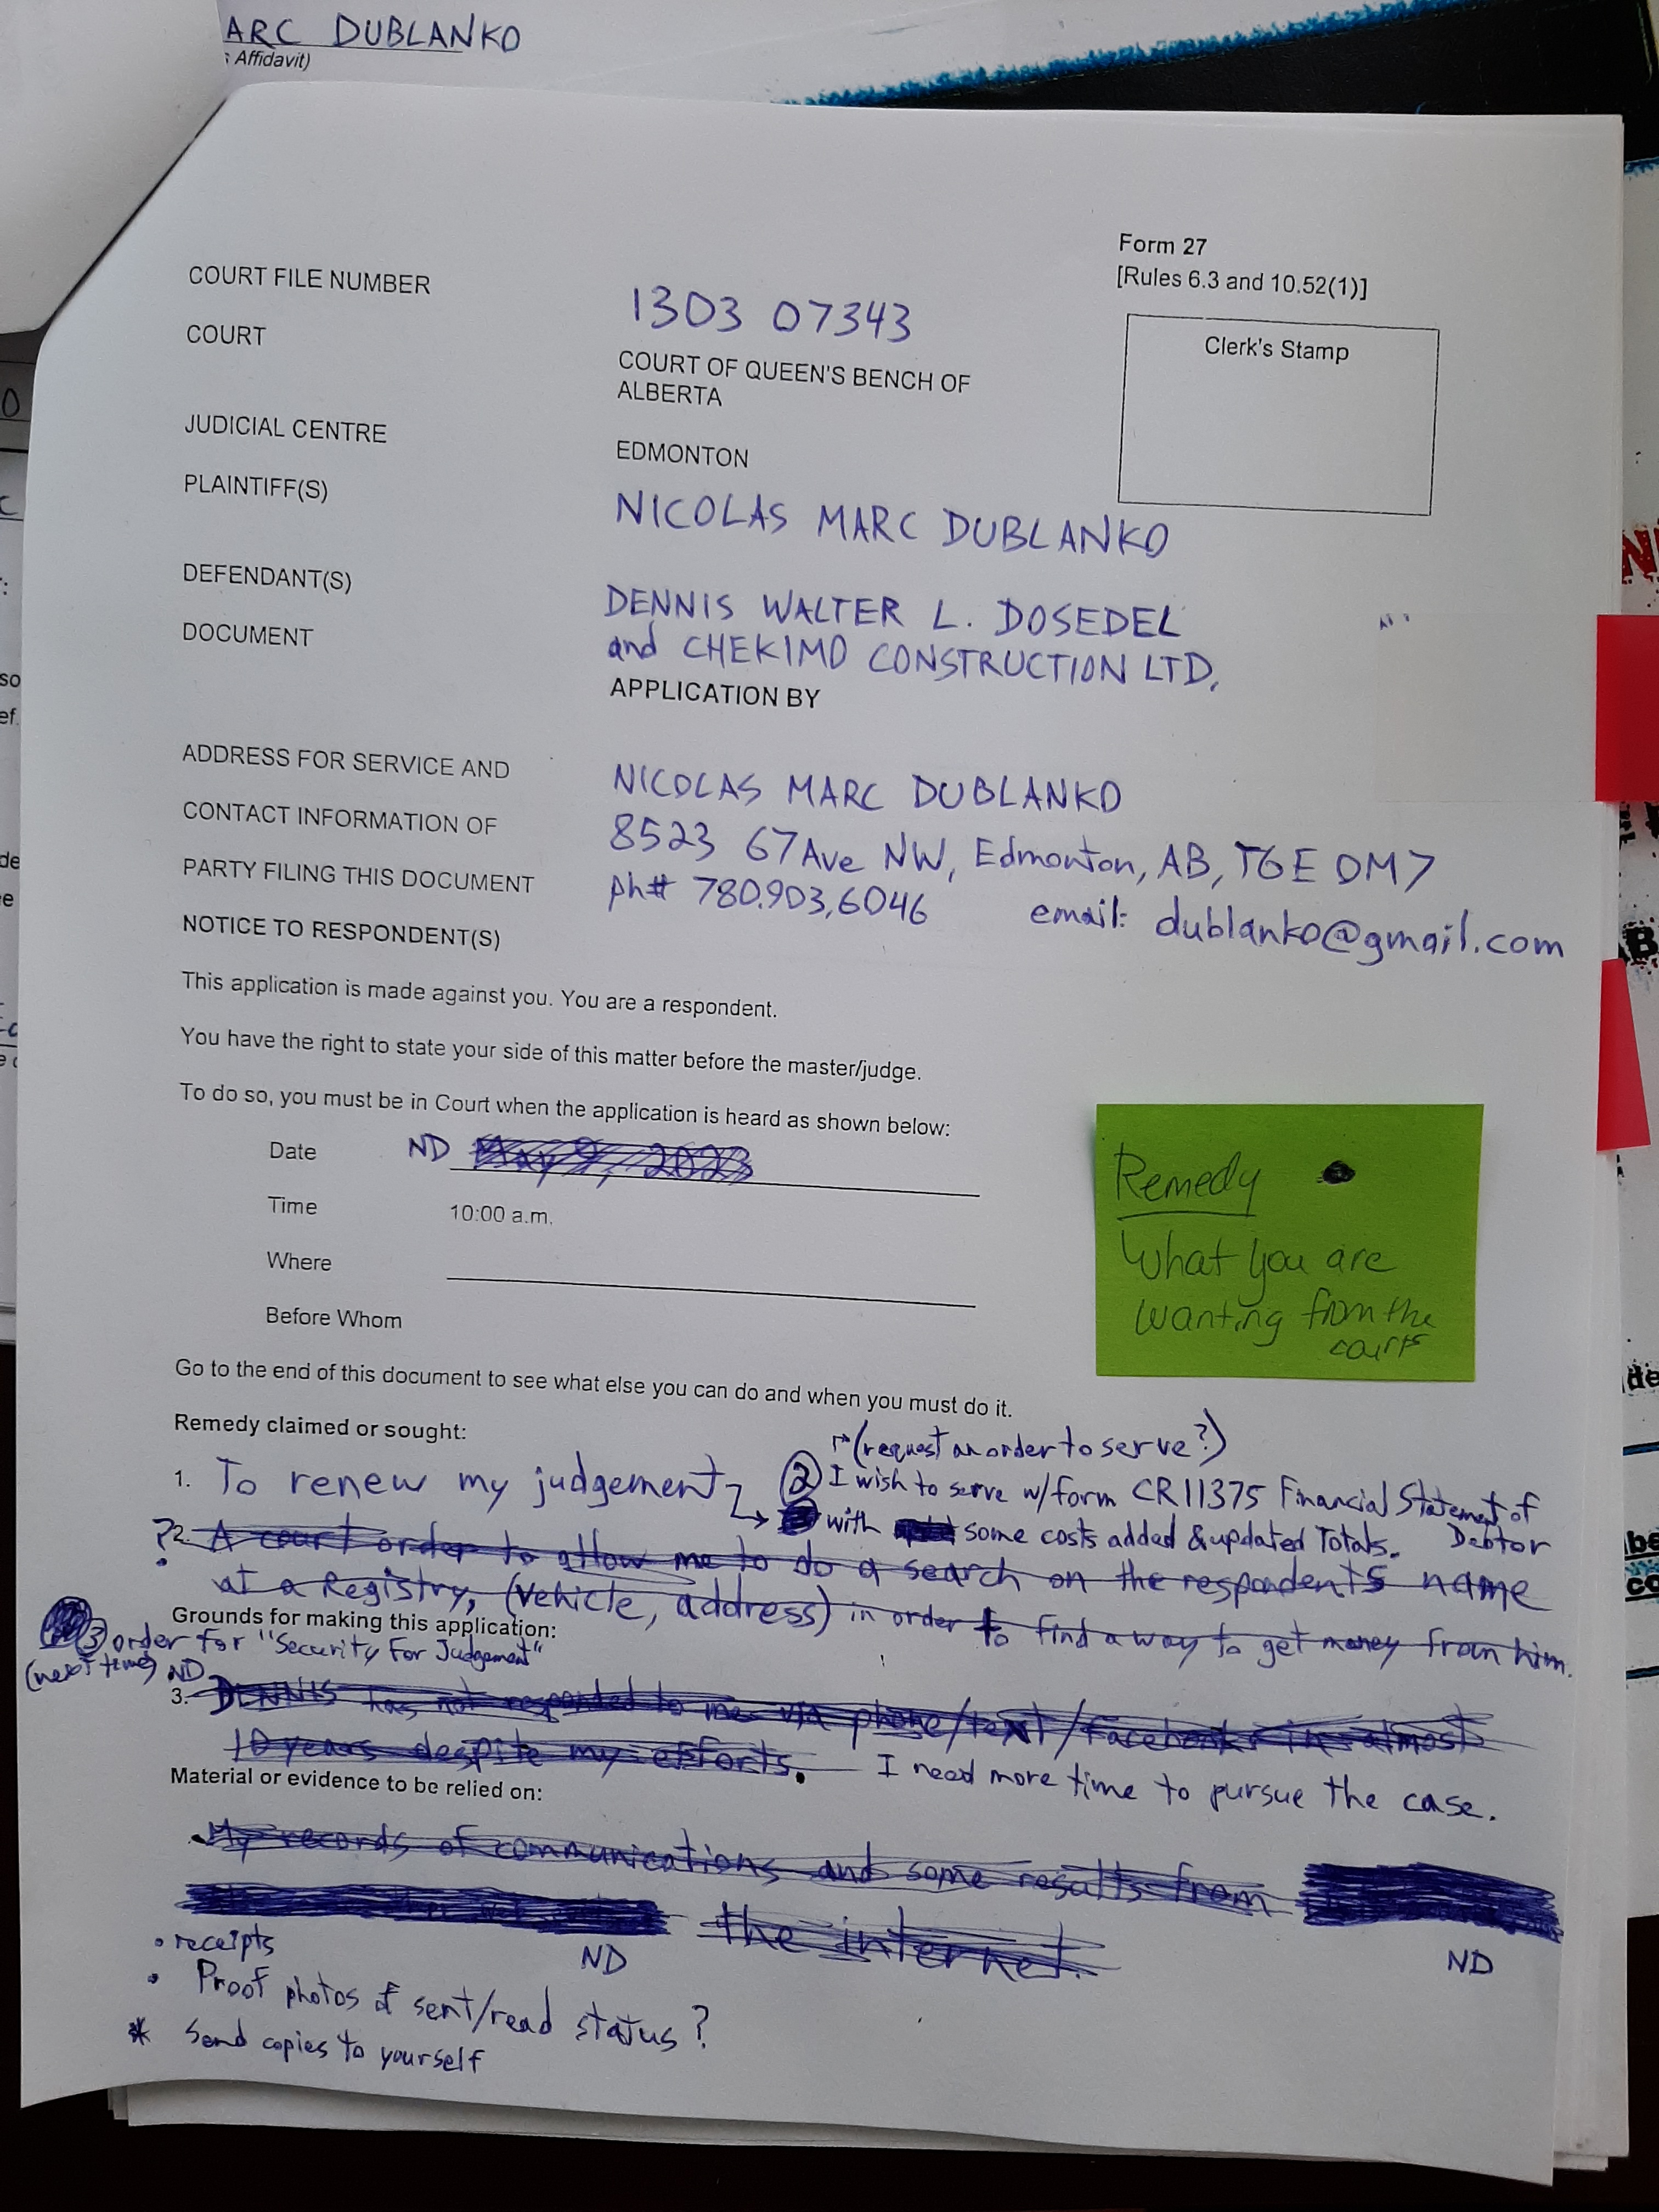 ARC DUBLANKO
s Affidavit)
Form 27
[Rules 6.3 and 10.52(1)]
Clerk's Stamp
COURT FILE NUMBER
1303 07343
COURT
COURT OF QUEEN'S BENCH OF
ALBERTA
JUDICIAL CENTRE
EDMONTON
PLAINTIFF(S)
NICOLAS MARC DUBLANKO
DEFENDANT(S)
DENNIS WALTER L. DOSEDEL
and CHEKIMO CONSTRUCTION LTD.
DOCUMENT
APPLICATION BY
ADDRESS FOR SERVICE AND
CONTACT INFORMATION OF
PARTY FILING THIS DOCUMENT
NICOLAS MARC DUBLANKO
8523 67 Ave NW, Edmonton, AB, T6E 0M7
ph# 780.903.6046 email: dublanko@gmail.com
NOTICE TO RESPONDENT(S)
This application is made against you. You are a respondent.
You have the right to state your side of this matter before the master/judge.
To do so, you must be in Court when the application is heard as shown below:
Date ND May 9, 2023
Time 10:00 a.m.
Where
Before Whom
Remedy
What you are
wanting from the
courts
Go to the end of this document to see what else you can do and when you must do it.
Remedy claimed or sought:
(request an order to serve?)
1. To renew my judgement
2 I wish to serve w/form CR11375 Financial Statement of
Debtor
with some costs added & updated Totals.
? 2. A court order to allow me to do a search on the respondents name
at a Registry, (vehicle, address) in order to find a way to get money from him.
Grounds for making this application:
3 order for "Security For Judgement"
(next time) ND
3. DENNIS has not responded to me via phone/text/facebook in almost
10 years despite my efforts. I need more time to pursue the case.
Material or evidence to be relied on:
My records of communications and some results from
the internet.
ND
ND
• receipts
• Proof photos of sent/read status?
* Send copies to yourself